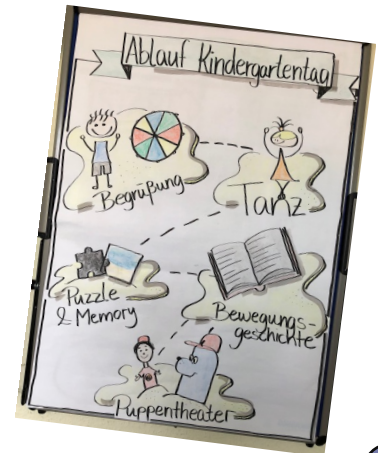 Ablauf Kindergartentag
Begrüßung
Tanz
Puzzle
& Memory
Bewegungs-
geschichte
Puppentheater